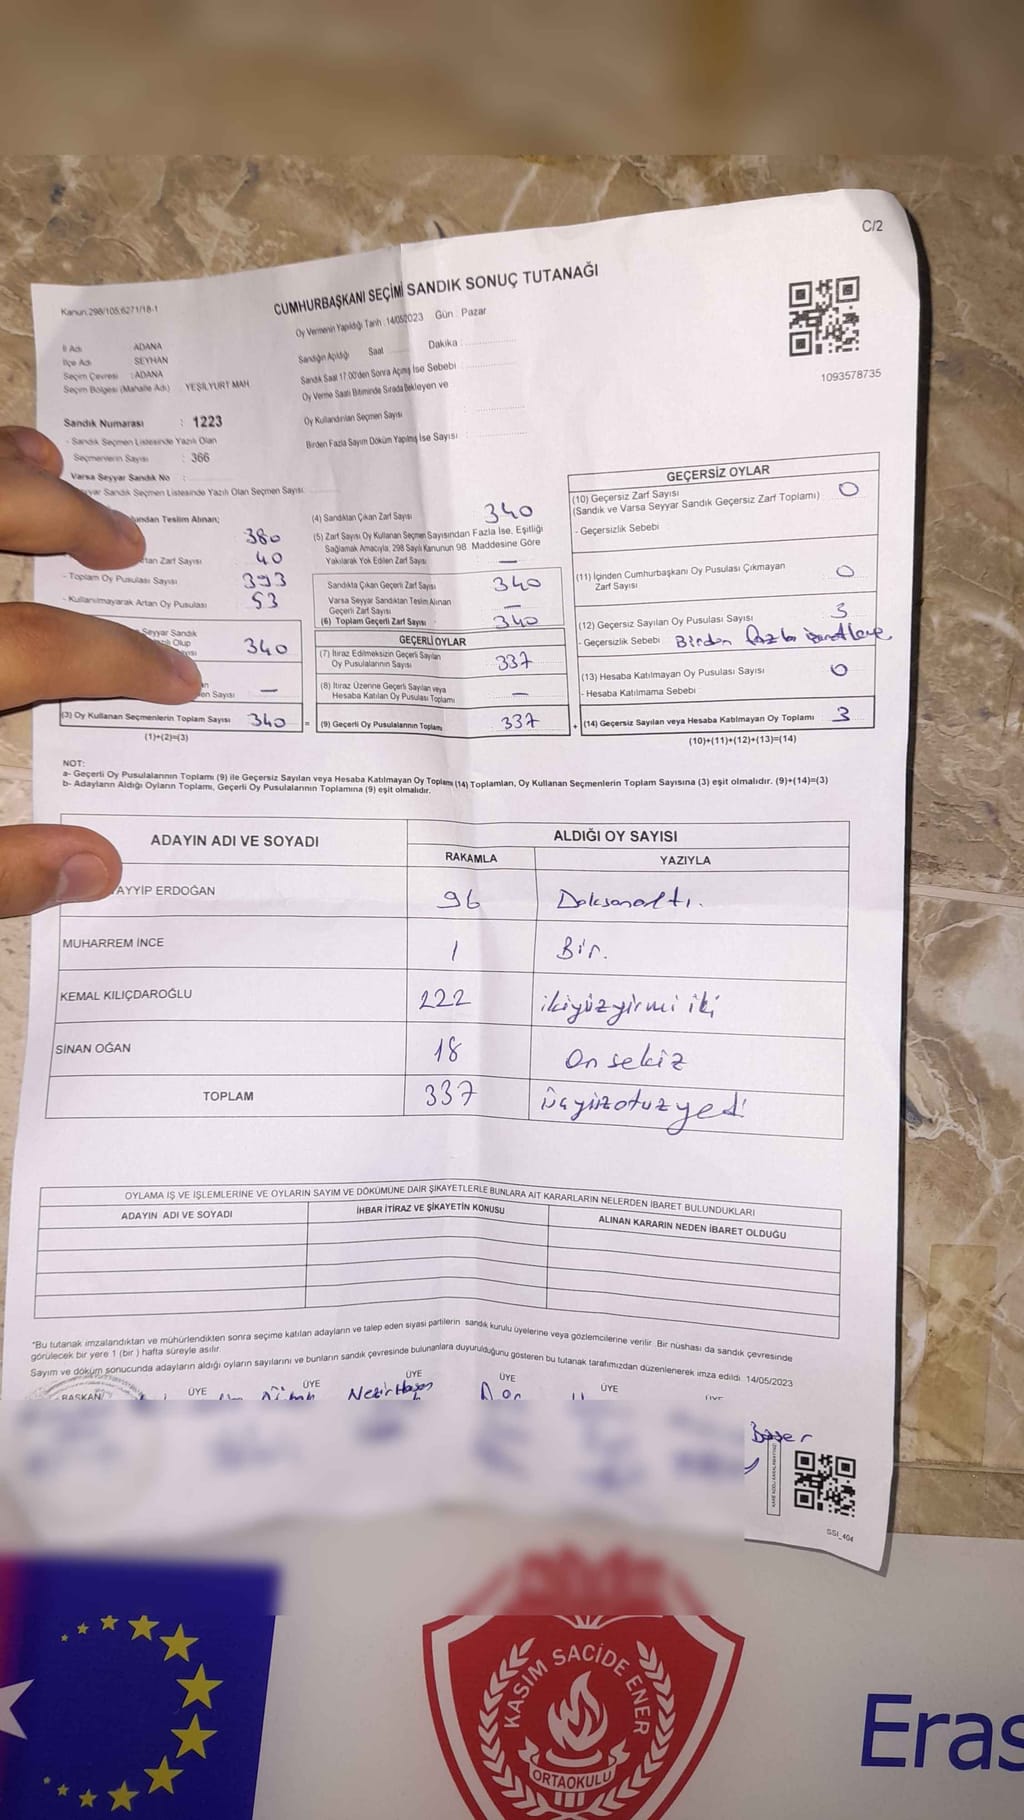 C/2
Kanun:298/105;6271/18-1
CUMHURBAŞKANI SEÇİMİ SANDIK SONUÇ TUTANAĞI
Oy Vermenin Yapıldığı Tarih : 14/05/2023 Gün : Pazar
İl Adı ADANA
İlçe Adı SEYHAN
Seçim Çevresi : ADANA
Seçim Bölgesi (Mahalle Adı) YEŞİLYURT MAH
Sandığın Açıldığı Saat Dakika :
Sandık Saat 17:00'den Sonra Açılmış İse Sebebi :
Oy Verme Saati Bitiminde Sırada Bekleyen ve
Oy Kullandırılan Seçmen Sayısı :
Birden Fazla Sayım Döküm Yapılmış İse Sayısı :
1093578735
Sandık Numarası : 1223
- Sandık Seçmen Listesinde Yazılı Olan
Seçmenlerin Sayısı : 366
Varsa Seyyar Sandık No :
Sandık Seçmen Listesinde Yazılı Olan Seçmen Sayısı
Teslim Alınan;
380
Zarf Sayısı 40
- Toplam Oy Pusulası Sayısı 393
- Kullanılmayarak Artan Oy Pusulası 53
Seyyar Sandık
Olup
340
Sayısı —
(3) Oy Kullanan Seçmenlerin Toplam Sayısı 340 =
(1)+(2)=(3)
(4) Sandıktan Çıkan Zarf Sayısı 340
(5) Zarf Sayısı Oy Kullanan Seçmen Sayısından Fazla İse, Eşitliği
Sağlamak Amacıyla, 298 Sayılı Kanunun 98. Maddesine Göre
Yakılarak Yok Edilen Zarf Sayısı —
Sandıkta Çıkan Geçerli Zarf Sayısı 340
Varsa Seyyar Sandıktan Teslim Alınan
Geçerli Zarf Sayısı —
(6) Toplam Geçerli Zarf Sayısı 340
GEÇERLİ OYLAR
(7) İtiraz Edilmeksizin Geçerli Sayılan
Oy Pusulalarının Sayısı 337
(8) İtiraz Üzerine Geçerli Sayılan veya
Hesaba Katılan Oy Pusulası Toplamı —
(9) Geçerli Oy Pusulalarının Toplamı 337 +
GEÇERSİZ OYLAR
(10) Geçersiz Zarf Sayısı 0
(Sandık ve Varsa Seyyar Sandık Geçersiz Zarf Toplamı)
- Geçersizlik Sebebi
(11) İçinden Cumhurbaşkanı Oy Pusulası Çıkmayan 0
Zarf Sayısı
(12) Geçersiz Sayılan Oy Pusulası Sayısı 3
- Geçersizlik Sebebi Birden fazla
(13) Hesaba Katılmayan Oy Pusulası Sayısı 0
- Hesaba Katılmama Sebebi
(14) Geçersiz Sayılan veya Hesaba Katılmayan Oy Toplamı 3
(10)+(11)+(12)+(13)=(14)
NOT:
a- Geçerli Oy Pusulalarının Toplamı (9) ile Geçersiz Sayılan veya Hesaba Katılmayan Oy Toplamı (14) Toplamları, Oy Kullanan Seçmenlerin Toplam Sayısına (3) eşit olmalıdır. (9)+(14)=(3)
b- Adayların Aldığı Oyların Toplamı, Geçerli Oy Pusulalarının Toplamına (9) eşit olmalıdır.
ADAYIN ADI VE SOYADI ALDIĞI OY SAYISI
RAKAMLA YAZIYLA
AYYİP ERDOĞAN 96 Doksanaltı.
MUHARREM İNCE 1 Bir.
KEMAL KILIÇDAROĞLU 222 ikiyüzyirmi iki
SİNAN OĞAN 18 On sekiz
TOPLAM 337 üçyüzotuzyedi
OYLAMA İŞ VE İŞLEMLERİNE VE OYLARIN SAYIM VE DÖKÜMÜNE DAİR ŞİKAYETLERLE BUNLARA AİT KARARLARIN NELERDEN İBARET BULUNDUKLARI
ADAYIN ADI VE SOYADI İHBAR İTİRAZ VE ŞİKAYETİN KONUSU ALINAN KARARIN NEDEN İBARET OLDUĞU
"Bu tutanak imzalandıktan ve mühürlendikten sonra seçime katılan adayların ve talep eden siyasi partilerin sandık kurulu üyelerine veya gözlemcilerine verilir. Bir nüshası da sandık çevresinde
görülecek bir yere 1 (bir ) hafta süreyle asılır.
Sayım ve döküm sonucunda adayların aldığı oyların sayılarını ve bunların sandık çevresinde bulunanlara duyurulduğunu gösteren bu tutanak tarafımızdan düzenlenerek imza edildi. 14/05/2023
BAŞKAN ÜYE ÜYE ÜYE ÜYE ÜYE
SSI_404
KASIM SACİDE ENER
ORTAOKULU
Eras